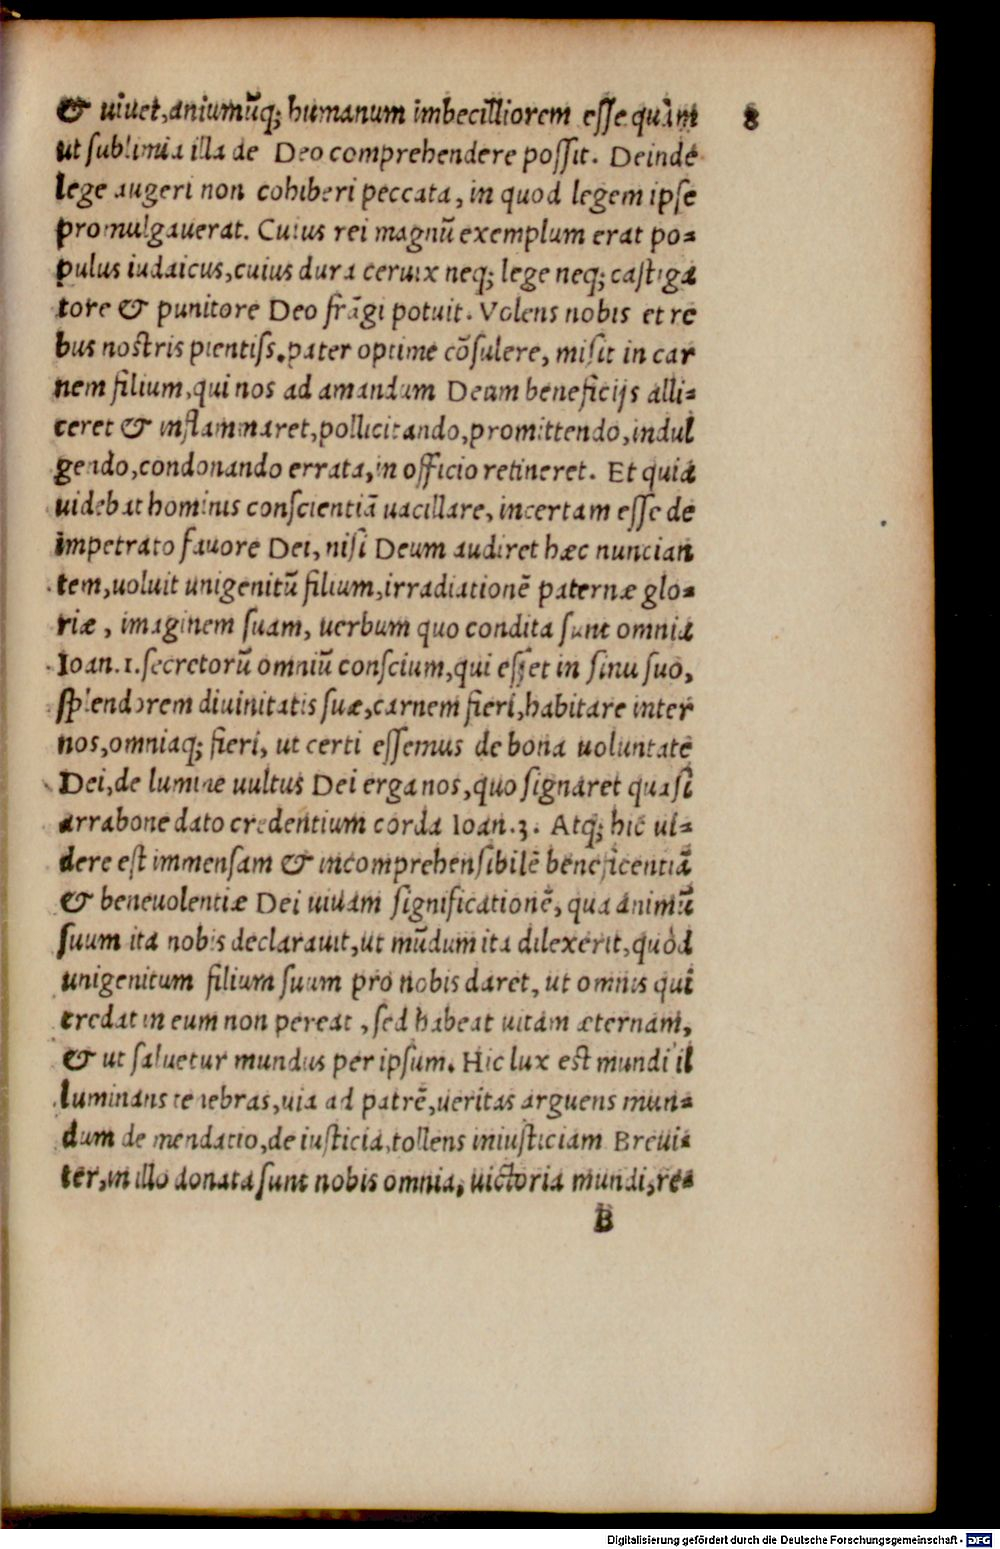 & uiuet, aniumũq; humanum imbecilliorem esse quàm 8
ut sublimia illa de Deo comprehendere possit. Deinde
lege augeri non cohiberi peccata, in quod legem ipse
promulgauerat. Cuius rei magnũ exemplum erat po-
pulus iudaicus, cuius dura ceruix neq; lege neq; castiga
tore & punitore Deo frãgi potuit. Volens nobis et re
bus nostris pientiss. pater optime cõsulere, misit in car
nem filium, qui nos ad amandum Deum beneficijs alli-
ceret & inflammaret, pollicitando, promittendo, indul
gendo, condonando errata, in officio retineret. Et quia
uidebat hominis conscientiã uacillare, incertam esse de
impetrato fauore Dei, nisi Deum audiret hæc nuncian
tem, uoluit unigenitũ filium, irradiationẽ paternæ glo-
riæ, imaginem suam, uerbum quo condita sunt omnia
Ioan. 1. secretorũ omniũ conscium, qui esset in sinu suo,
splendorem diuinitatis suæ, carnem fieri, habitare inter
nos, omniaq; fieri, ut certi essemus de bona uoluntate
Dei, de lumine uultus Dei erga nos, quo signaret quasi
arrabone dato credentium corda Ioan. 3. Atq; hic ui-
dere est immensam & incomprehensibilẽ beneficentiã
& beneuolentiæ Dei uiuam significationẽ, qua animũ
suum ita nobis declarauit, ut mũdum ita dilexerit, quòd
unigenitum filium suum pro nobis daret, ut omnis qui
credat in eum non pereat, sed habeat uitam æternam,
& ut saluetur mundus per ipsum. Hic lux est mundi il
luminans tenebras, uia ad patrẽ, ueritas arguens mun-
dum de mendatio, de iusticia, tollens iniusticiam Breui-
ter, in illo donata sunt nobis omnia, uictoria mundi, re-
B
Digitalisierung gefördert durch die Deutsche Forschungsgemeinschaft - DFG